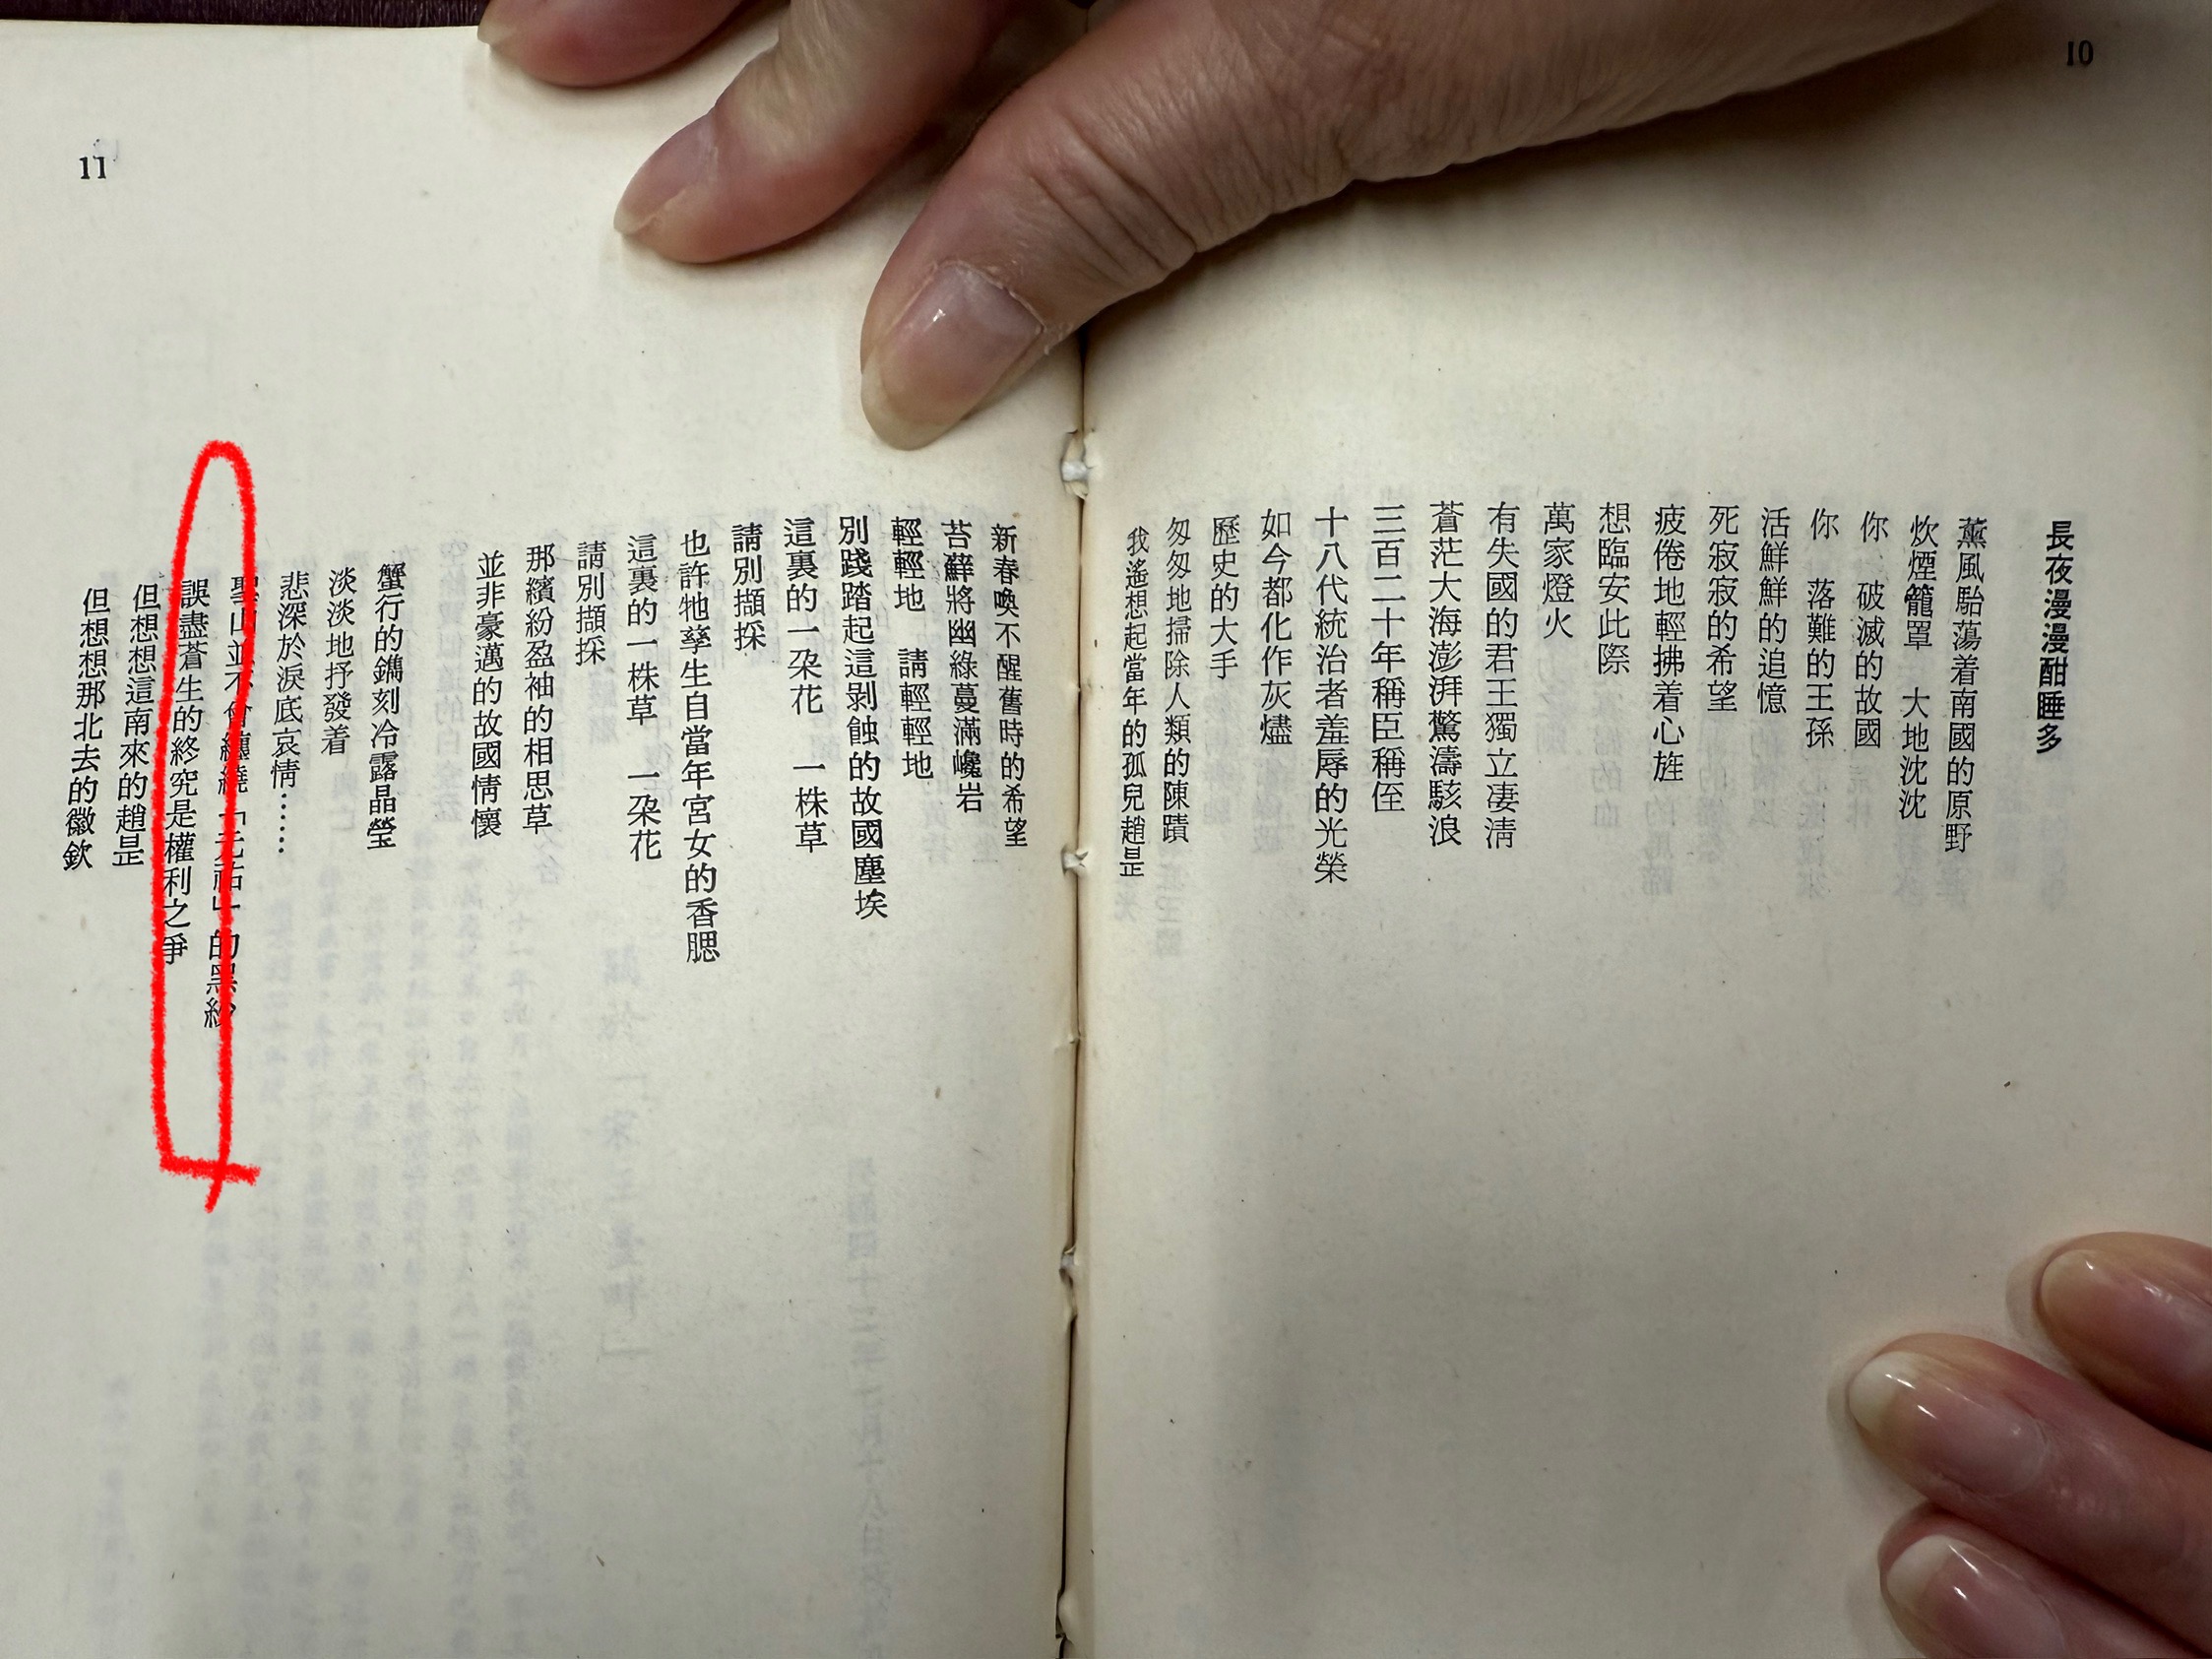 10
長夜漫漫酣睡多
薰風駘蕩着南國的原野
炊煙籠罩　大地沈沈
你　破滅的故國
你　落難的王孫
活鮮鮮的追憶
死寂寂的希望
疲倦地輕拂着心旌
想臨安此際
萬家燈火
有失國的君王獨立凄清
蒼茫大海澎湃驚濤駭浪
三百二十年稱臣稱侄
十八代統治者羞辱的光榮
如今都化作灰燼
歷史的大手
匆匆地掃除人類的陳蹟
我遙想起當年的孤兒趙昰
11
新春喚不醒舊時的希望
苔蘚將幽綠蔓滿巉岩
輕輕地　請輕輕地
別踐踏起這剝蝕的故國塵埃
這裏的一朶花　一株草
請別擷採
也許牠孳生自當年宮女的香腮
這裏的一株草　一朶花
請別擷採
那繽紛盈袖的相思草
並非豪邁的故國情懷
蟹行的鐫刻冷露晶瑩
淡淡地抒發着
悲深於淚底哀情……
聖山並不會纏繞「元祐」的黑紗
誤盡蒼生的終究是權利之爭
但想想這南來的趙昰
但想想那北去的徽欽